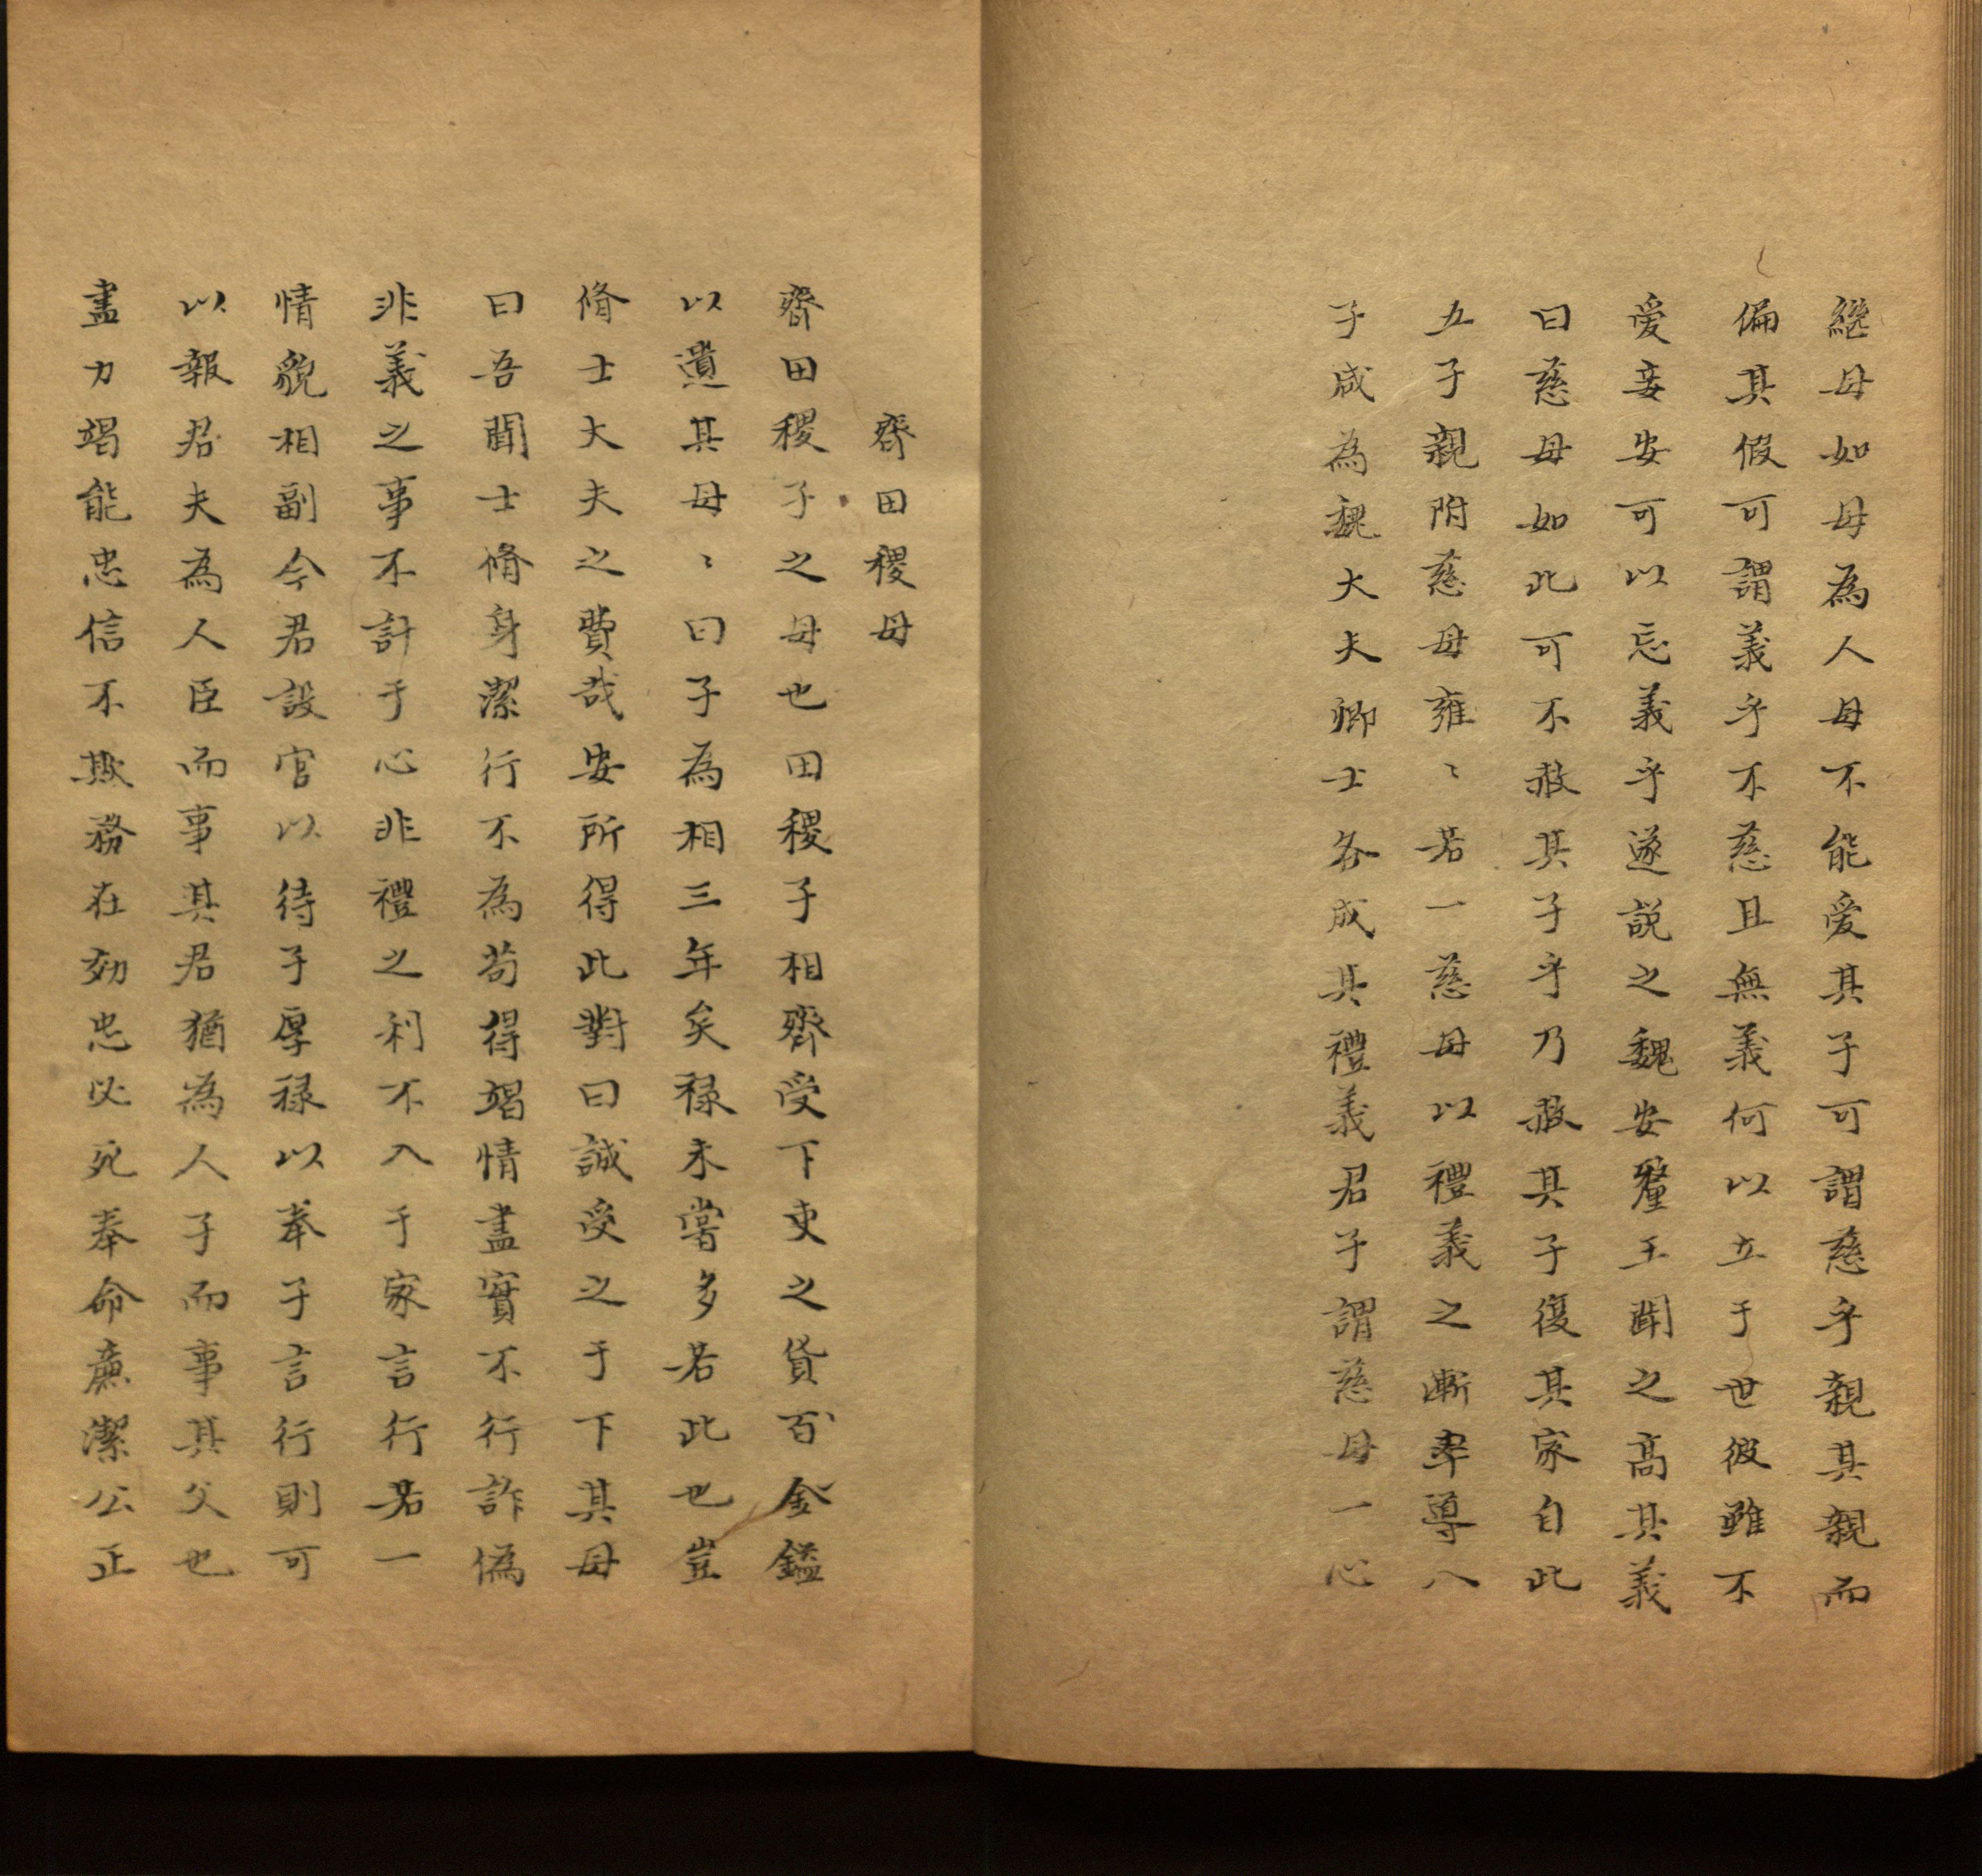 繼母如母為人母不能爱其子可謂慈乎親其親而
偏其假可謂義乎不慈且無義何以立于世彼雖不
愛妾安可以忘義乎遂説之魏安釐王聞之高其義
曰慈母如此可不赦其子乎乃赦其子復其家自此
五子親附慈母雍〻若一慈母以禮義之漸率導八
子咸為魏大夫卿士各成其禮義君子謂慈母一心
齊田稷母
齊田稷子之母也田稷子相齊受下吏之貨百金鎰
以遺其母〻曰子為相三年矣禄未嘗多若此也豈
脩士大夫之費哉安所得此對曰誠受之于下其母
曰吾聞士脩身潔行不為苟得竭情盡實不行詐偽
非義之事不計于心非禮之利不入于家言行若一
情貌相副今君設官以待子厚禄以奉子言行則可
以報君夫為人臣而事其君猶為人子而事其父也
盡力竭能忠信不欺務在効忠必死奉命廉潔公正